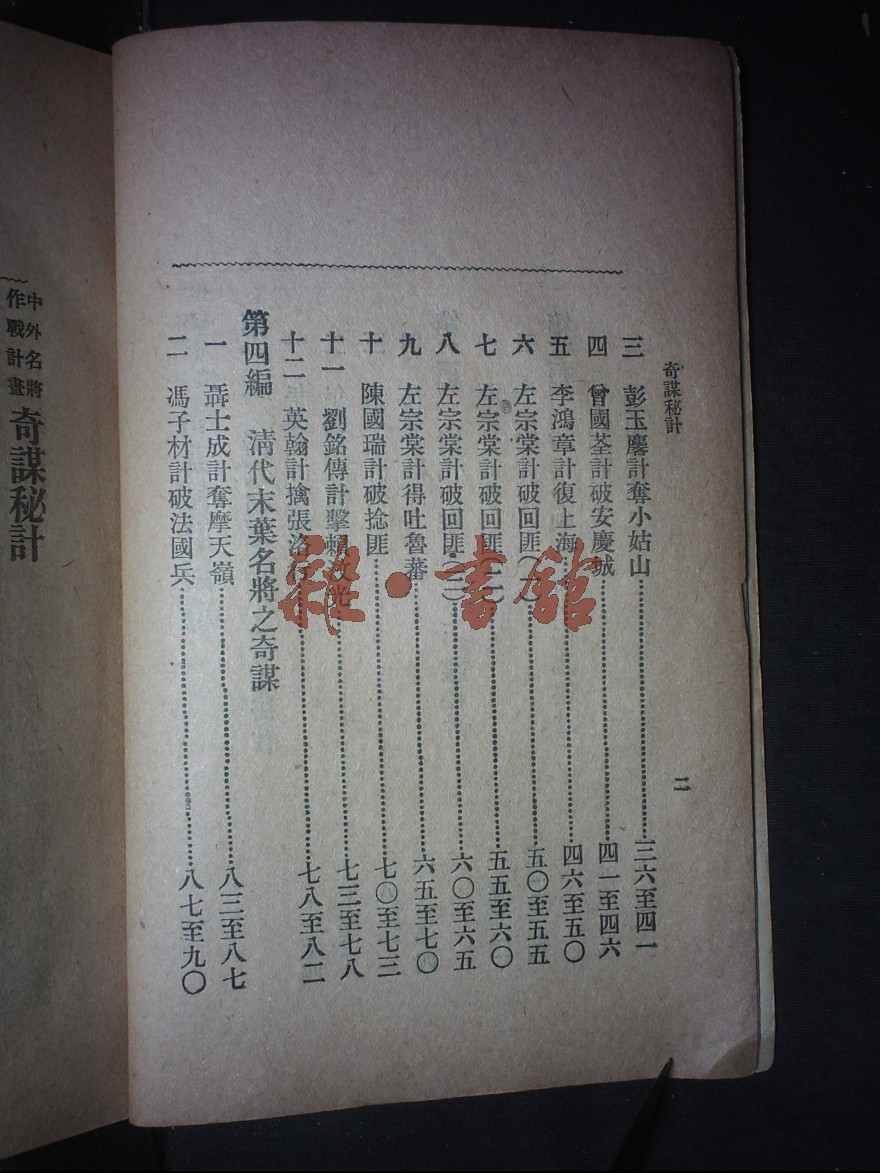 奇謀秘計
二
三 彭玉麐計奪小姑山……三六至四一
四 曾國荃計破安慶城……四一至四六
五 李鴻章計復上海……四六至五〇
六 左宗棠計破回匪(一)……五〇至五五
七 左宗棠計破回匪(二)……五五至六〇
八 左宗棠計破回匪(三)……六〇至六五
九 左宗棠計得吐魯蕃……六五至七〇
十 陳國瑞計破捻匪……七〇至七三
十一 劉銘傳計擊賴光……七三至七八
十二 英翰計擒張洛……七八至八二
第四編 淸代末葉名將之奇謀
一 聶士成計奪摩天嶺……八三至八七
二 馮子材計破法國兵……八七至九〇
中外名將
作戰計畫
奇謀秘計
雜·書館